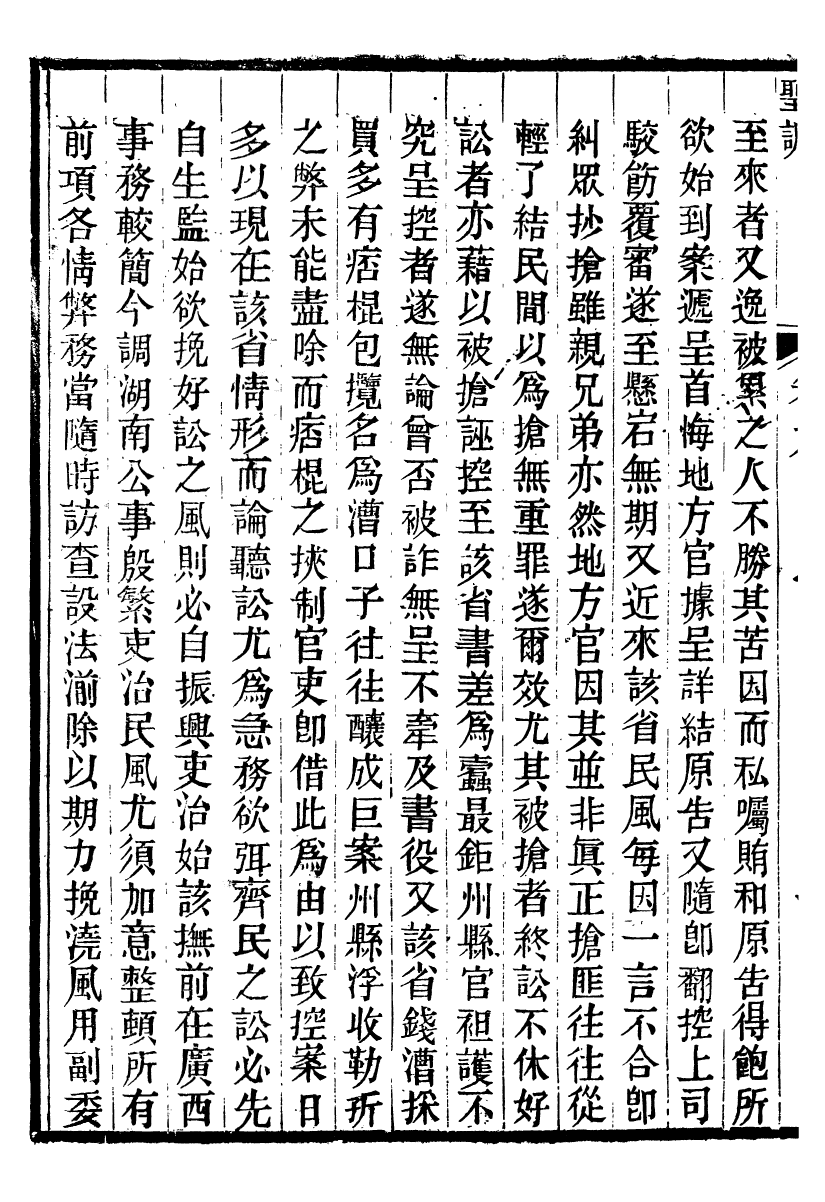 聖訓
至來者又逸被累之人不勝其苦因而私囑賄和原告得飽所
欲始到案遞呈首悔地方官據呈詳結原告又隨卽翻控上司
駮飭覆審遂至懸宕無期又近來該省民風每因一言不合卽
糾眾抄搶雖親兄弟亦然地方官因其並非眞正搶匪往往從
輕了結民間以爲搶無重罪遂爾效尤其被搶者終訟不休好
訟者亦藉以被搶誣控至該省書差爲蠹最鉅州縣官袒護不
究呈控者遂無論曾否被詐無呈不牽及書役又該省錢漕採
買多有痞棍包攬名爲漕口子往往釀成巨案州縣浮收勒折
之弊未能盡除而痞棍之挾制官吏卽借此爲由以致控案日
多以現在該省情形而論聽訟尤爲急務欲弭齊民之訟必先
自生監始欲挽好訟之風則必自振興吏治始該撫前在廣西
事務較簡今調湖南公事殷繁吏治民風尤須加意整頓所有
前項各情弊務當隨時訪查設法湔除以期力挽澆風用副委